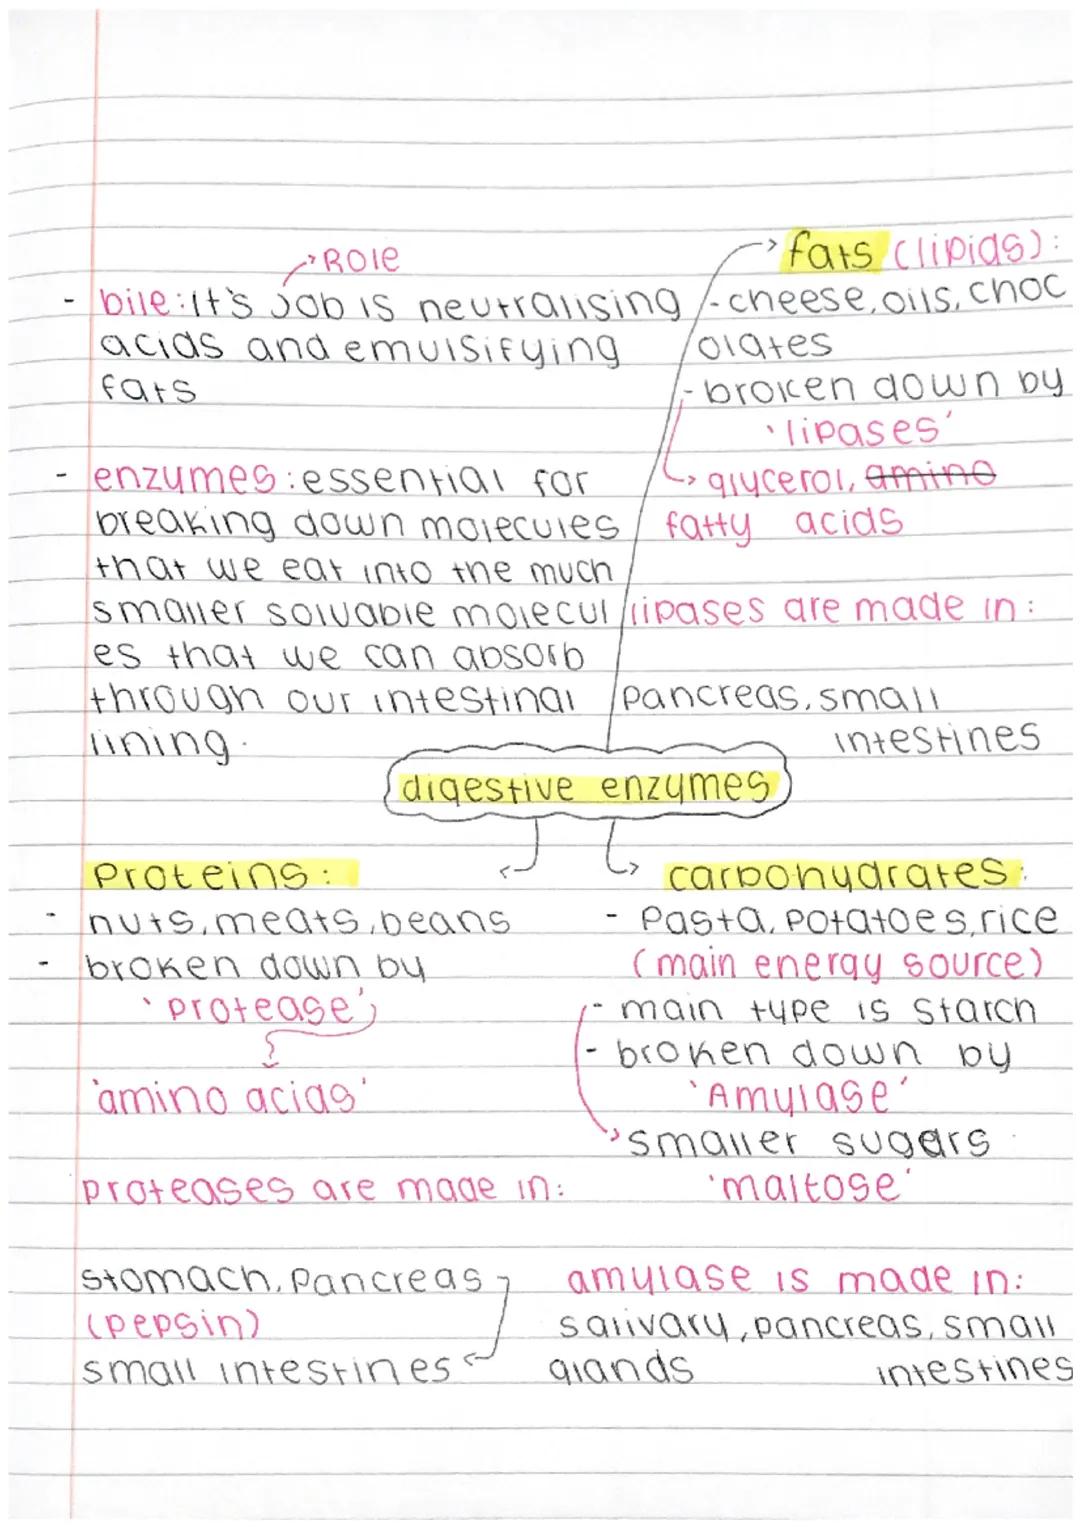 Role
- bile: it's job is neutralising
acids and emulsifying
fats
- enzymes: essential for
breaking down molecules
that we eat into the much
smaller soluable molecul
es that we can absorb
through our intestinal
lining.
fats (lipids):
- cheese, oils, choc
olates
- broken down by
'lipases'
glycerol, amino
fatty acids
lipases are made in:
pancreas, small
intestines
digestive enzymes
Proteins:
- nuts, meats, beans
- broken down by
'protease'
'amino acids'
proteases are made in:
stomach, Pancreas
(pepsin)
small intestines
carbohydrates:
- Pasta, Potatoes, rice
(main energy source)
- main type is starch
- broken down by
'Amylase'
smaller sugars
'maltose'
amylase is made in:
salivary, pancreas, small
glands intestines